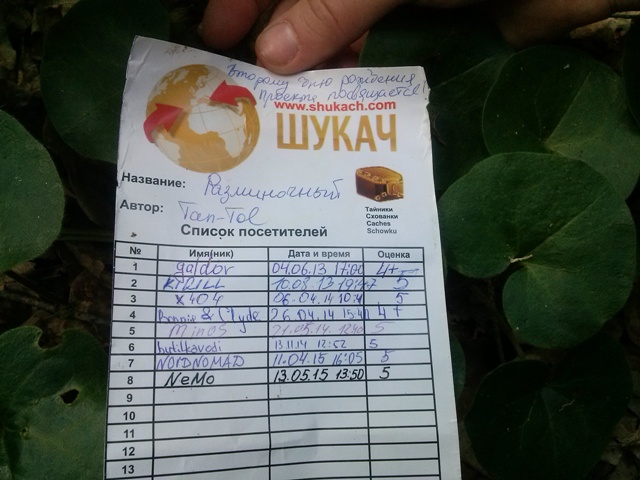 Второму дню рождения
проекта посвящается!
www.shukach.com
ШУКАЧ
Название: Разминочный
Автор: Tan-Tol
Тайники
Схованки
Caches
Schowku
Список посетителей
№ Имя(ник) Дата и время Оценка
1 galdor 04.06.13 17:00 4+
2 KIRILL 10.08.13 5
3 x404 06.04.14 5
4 Bonnie & Clyde 26.04.14 4+
5 Minos 21.05.14 1240 5
6 13.11.14 12:52 5
7 NORDNOMAD 11.04.15 16:05 5
8 NeMo 13.05.15 13:50 5
9
10
11
12
13